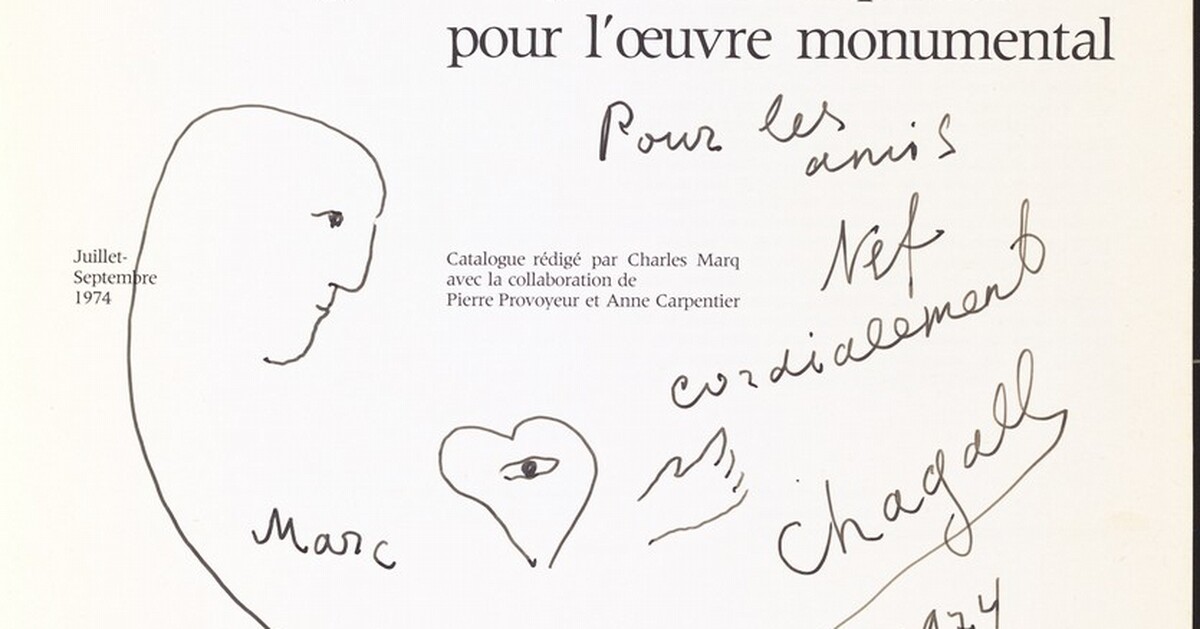 pour l'œuvre monumental
Pour les
amis
Nef
Juillet-
Septembre
1974
Catalogue rédigé par Charles Marq
avec la collaboration de
Pierre Provoyeur et Anne Carpentier
cordialement
Marc
Chagall